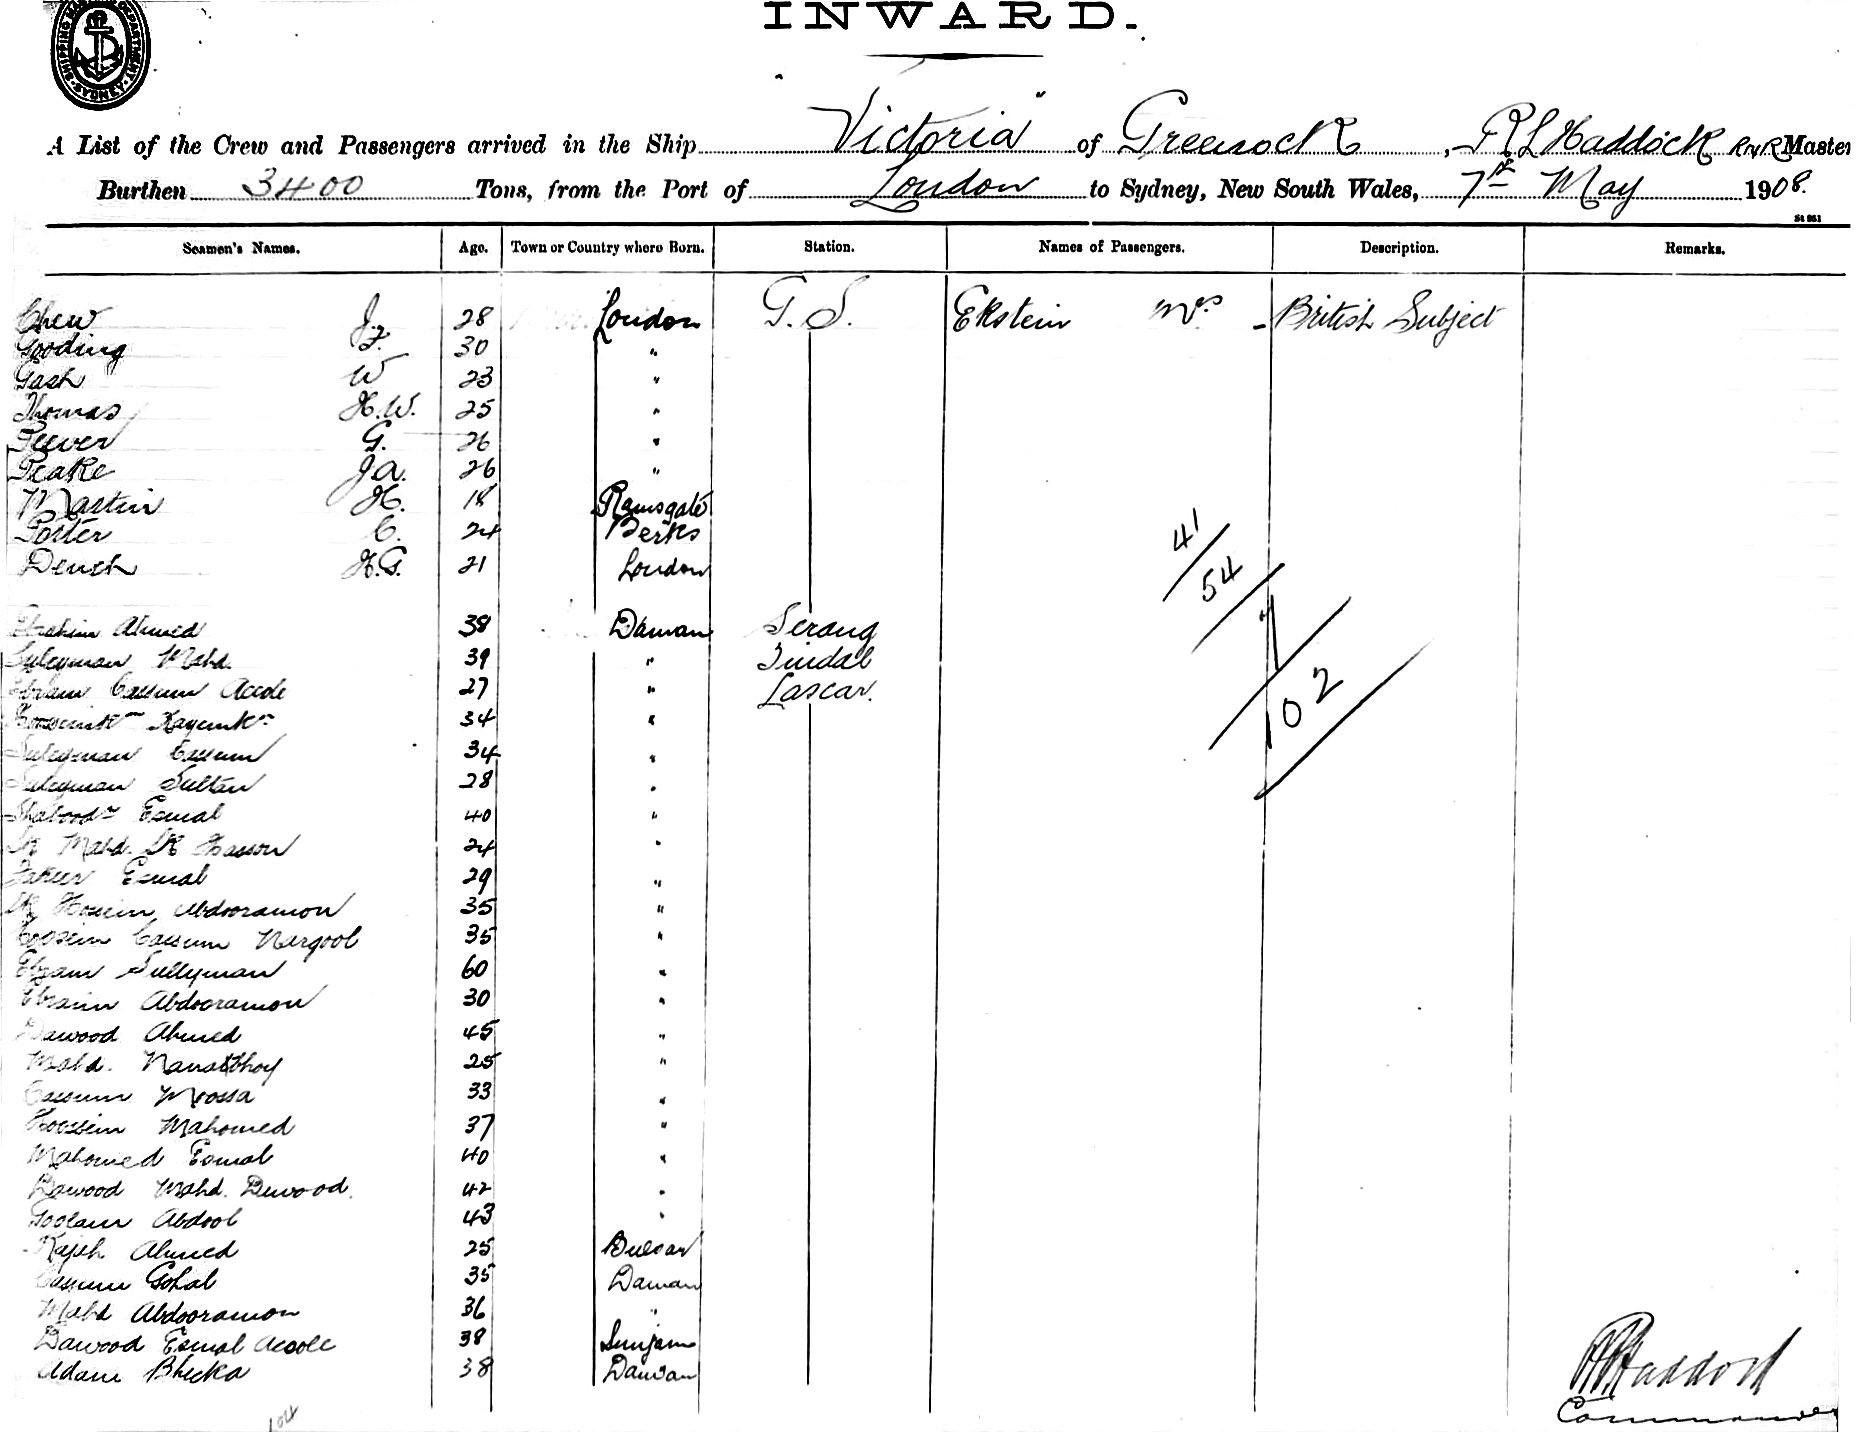 SHIPPING MASTER'S DEPARTMENT SYDNEY
INWARD.
A List of the Crew and Passengers arrived in the Ship "Victoria" of Greenock, R L Haddock R.N.R Master
Burthen 3400 Tons, from the Port of London to Sydney, New South Wales, 7th May 1908.
St 851
Seamen's Names. Age. Town or Country where Born. Station. Names of Passengers. Description. Remarks.
Chew J. 28 London G.S. Ekstein Mrs - British Subject
Gooding J. 30 "
Gash W 23 "
Thomas H.W. 25 "
Peever G. 26 "
Peake J.A. 26 "
Martin H. 18 Ramsgate
Porter C. 24 Berks
Dench H.G. 21 London
41
54
7
102
Ebrahim Ahmed 38 Daman Serang
Suleyman Mahd. 39 " Tindal
Ebram Cassum Accole 27 " Lascar.
34 "
Suleyman Cassum 34 "
Suleyman Sultan 28 "
Esmal 40 "
Sk Mahd. Sk Hasson 24 "
Fakeer Esmal 29 "
Sk Hosein Abdooramon 35 "
Hoosein Cassum Nargool 35 "
Ebram Sulleyman 60 "
Ebraim Abdooramon 30 "
Dawood Ahmed 45 "
Mahd. 25 "
Cassum Moossa 33 "
Hoossein Mahomed 37 "
Mahomed Esmal 40 "
Dawood Mahd. Dawood. 42 "
Goolam Abdool 43 "
Rajeh Ahmed 25 Bulsar
Cassum Gohal 35 Daman
Mahd Abdooramon 36 "
Dawood Esmal Accole 38 Sunjam
Adam Bhicka 38 Daman
104
R L Haddock
Commander